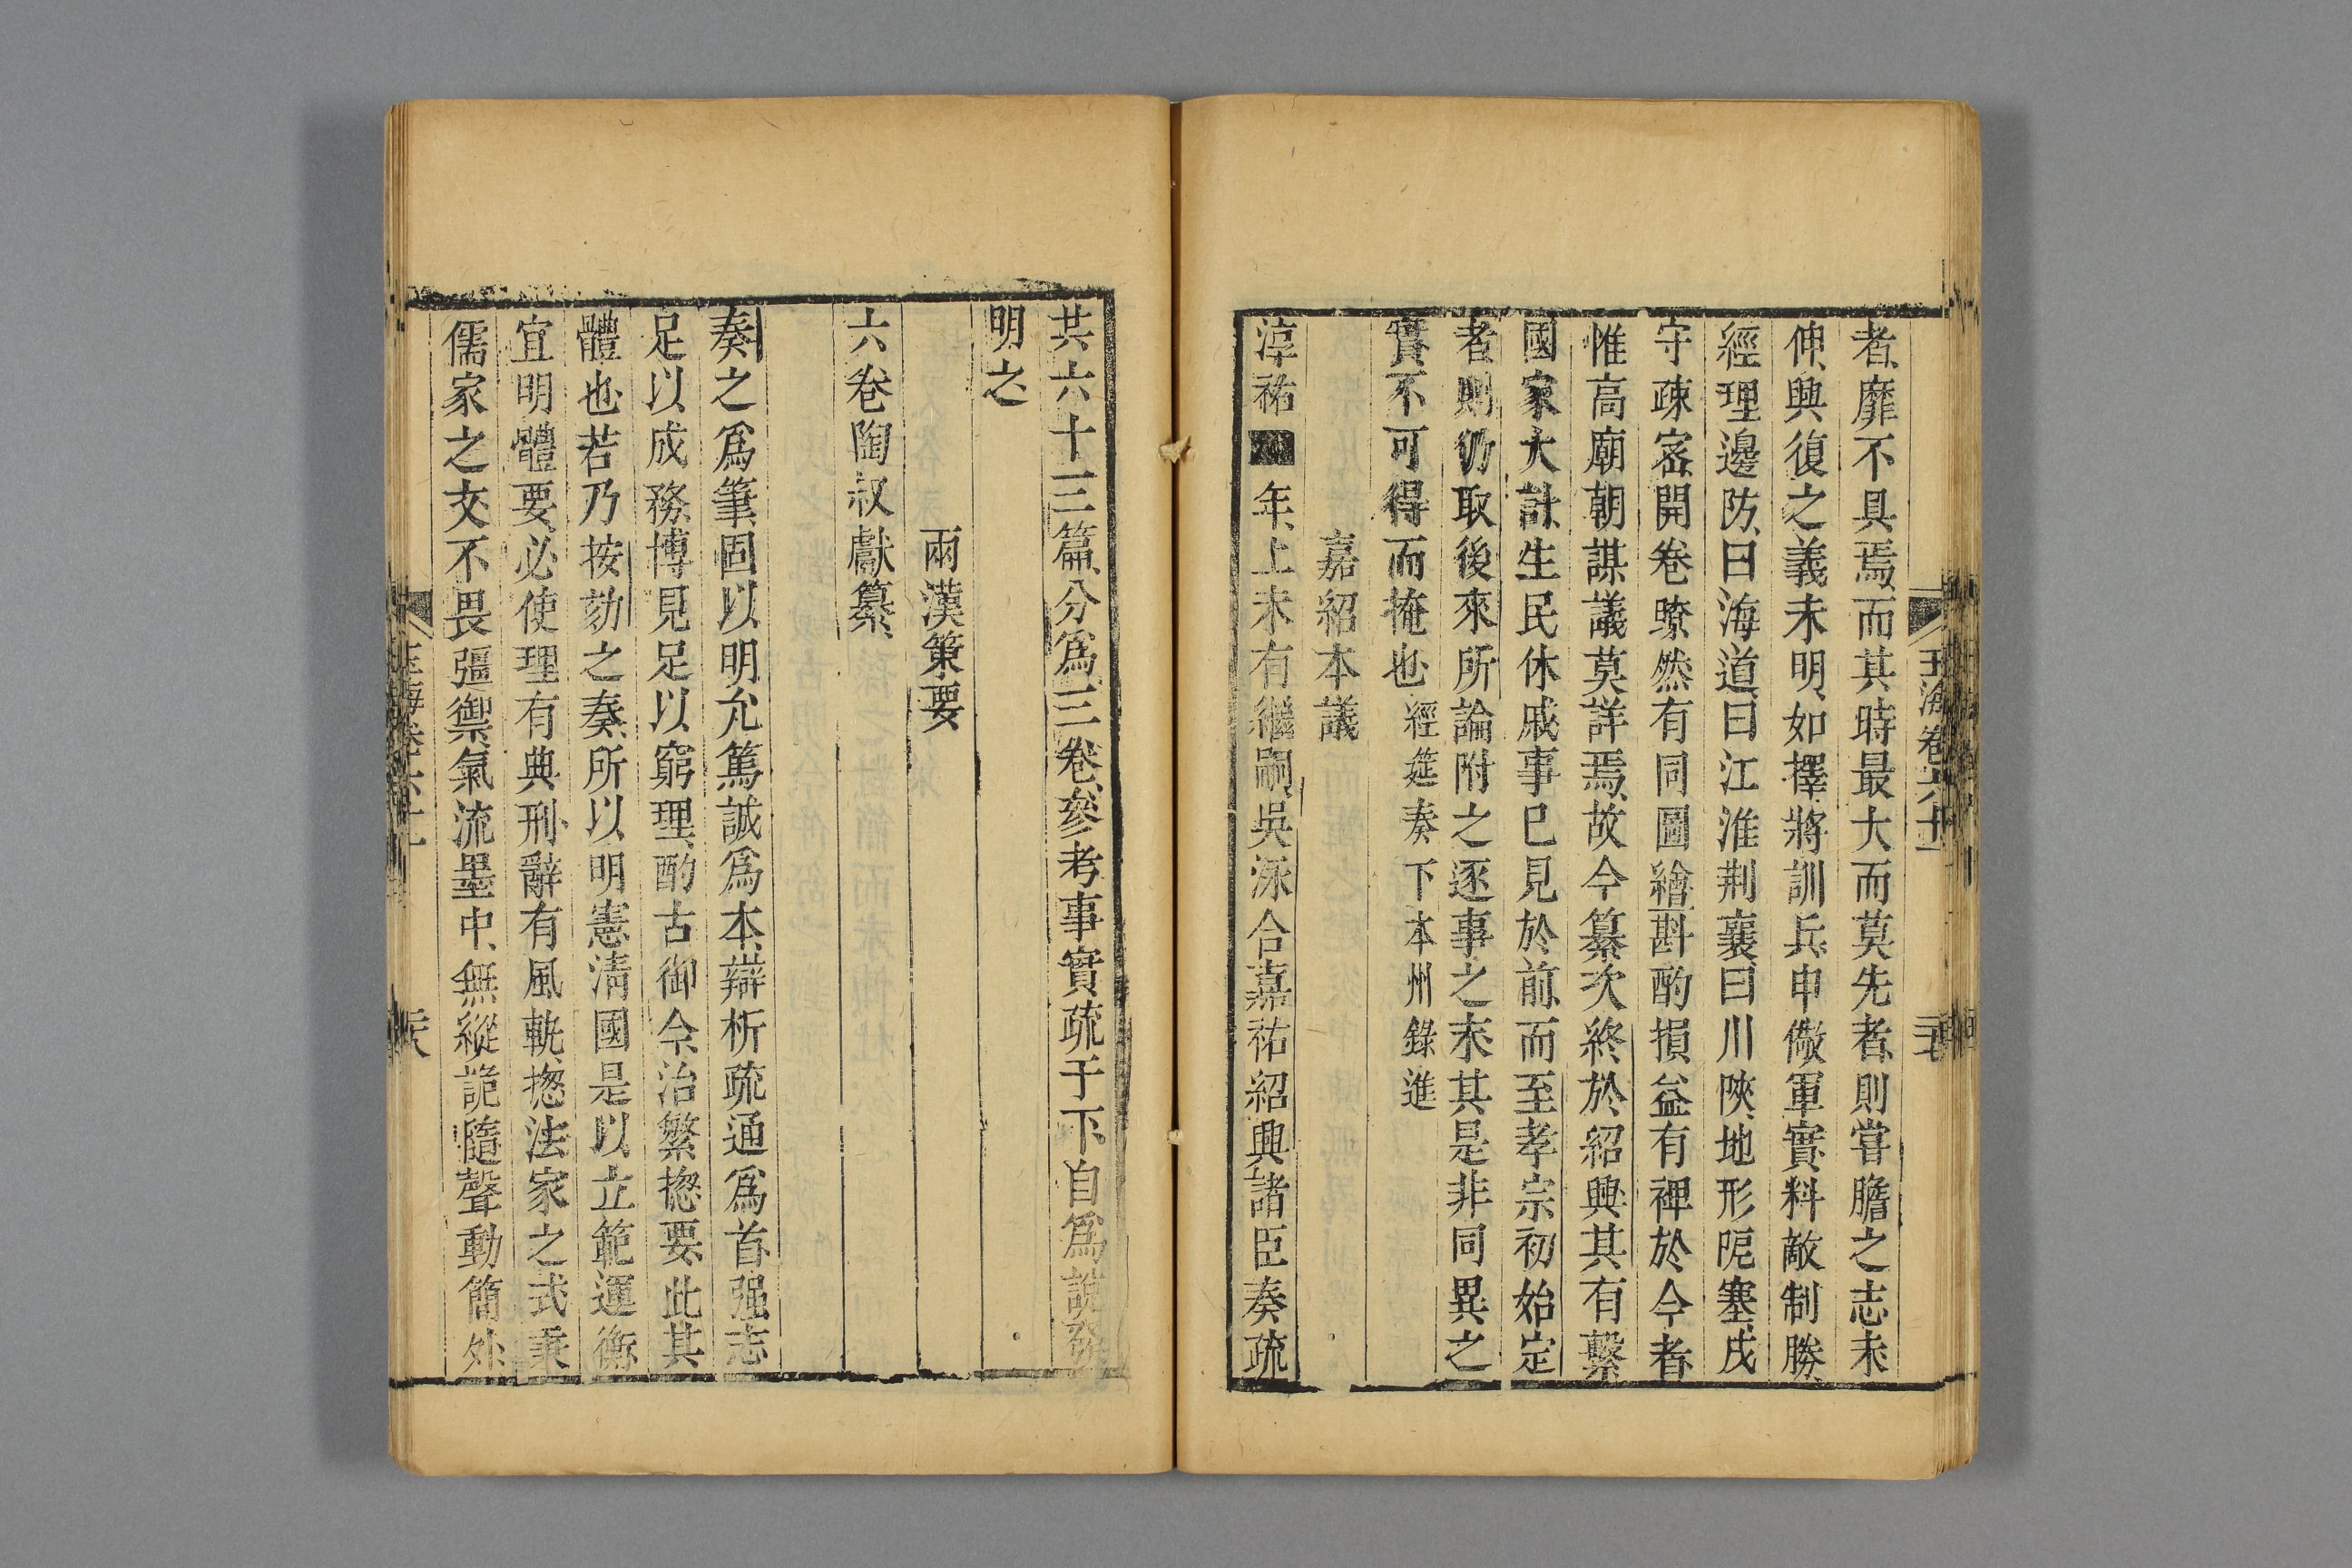 玉海卷六十一
者靡不具焉而其時最大而莫先者則嘗膽之志未
伸興復之義未明如擇將訓兵申儆軍實料敵制勝
經理邊防曰海道曰江淮荆襄曰川陝地形阨塞戍
守疎宻開卷瞭然有同圖繪斟酌損益有裨於今者
惟高廟朝謀議莫詳焉故今纂次終於紹興其有繫
國家大計生民休戚事已見於前而至孝宗初始定
者則仍取後來所論附之逐事之末其是非同異之
實不可得而掩也經筵奏下本州錄進
嘉紹本議
淳祐 年上未有繼嗣吳泳合嘉祐紹興諸臣奏疏
共六十三篇分爲三卷參考事實疏于下自爲説發
明之
兩漢策要
六卷陶叔獻纂
奏之爲筆固以明允篤誠爲本辯析疏通爲首强志
足以成務博見足以窮理酌古御今治繁揔要此其
體也若乃按劾之奏所以明憲清國是以立範運衡
宜明體要必使理有典刑辭有風軌揔法家之式秉
儒家之文不畏彊禦氣流墨中無縱詭隨聲動簡外
玉海卷六十一